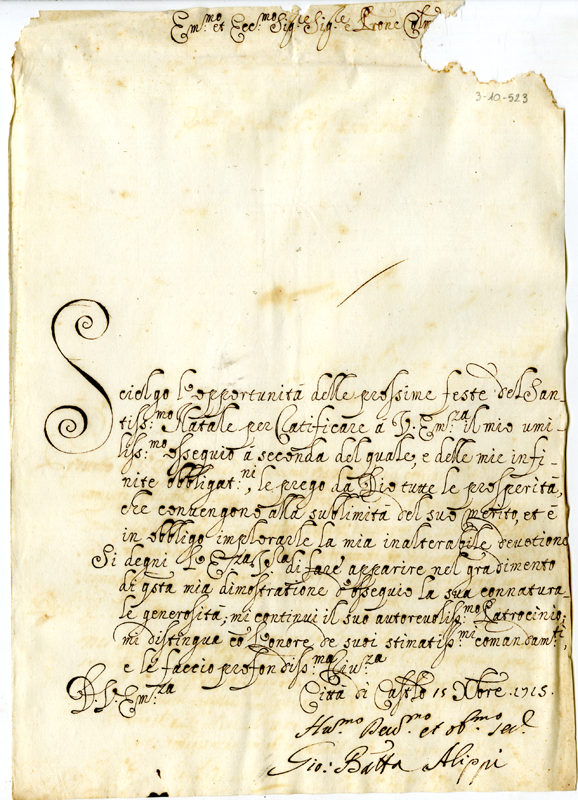 Em.mo et Ecc.mo Sig.re Sig.re e Prone Col.mo
3-10-523
Scielgo l'opportunità delle prossime feste del San-
tiss.mo Natale per Ratificare a V. Em.za il mio umi-
liss.mo ossequio à seconda del quale, e delle mie infi-
nite obbligat.ni, le prego da Dio tutte le prosperità,
che convengono alla sublimità del suo merito, et è
in obbligo implorarle la mia inalterabile devotione
Si degni l'Em.za V.ra di fare apparire nel gradimento
di q̃sta mia dimostratione d'ossequio la sua connatura-
le generosità; mi continui il suo autorevoliss.mo Patrocinio;
mi distingua co' l'onore de suoi stimatiss.mi comandam.ti,
e le faccio profondiss.ma Riv.za
D. V. Em.za
Città di Cast.lo 15 Xbre. 1715.
Hu.mo Dev.mo et ob.mo se.
Gio: Batta Alippi